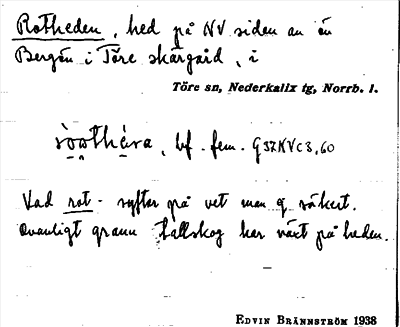 Rotheden, hed på NV sidan av ön
Bergön i Töre skärgård, i
Töre sn, Nederkalix tg, Norrb. l.
bf. fem. G 32 KV c 3, 60
Vad rot- syftar på vet man ej säkert.
Ovanligt grann tallskog har växt på heden.
EDVIN BRÄNNSTRÖM 1938